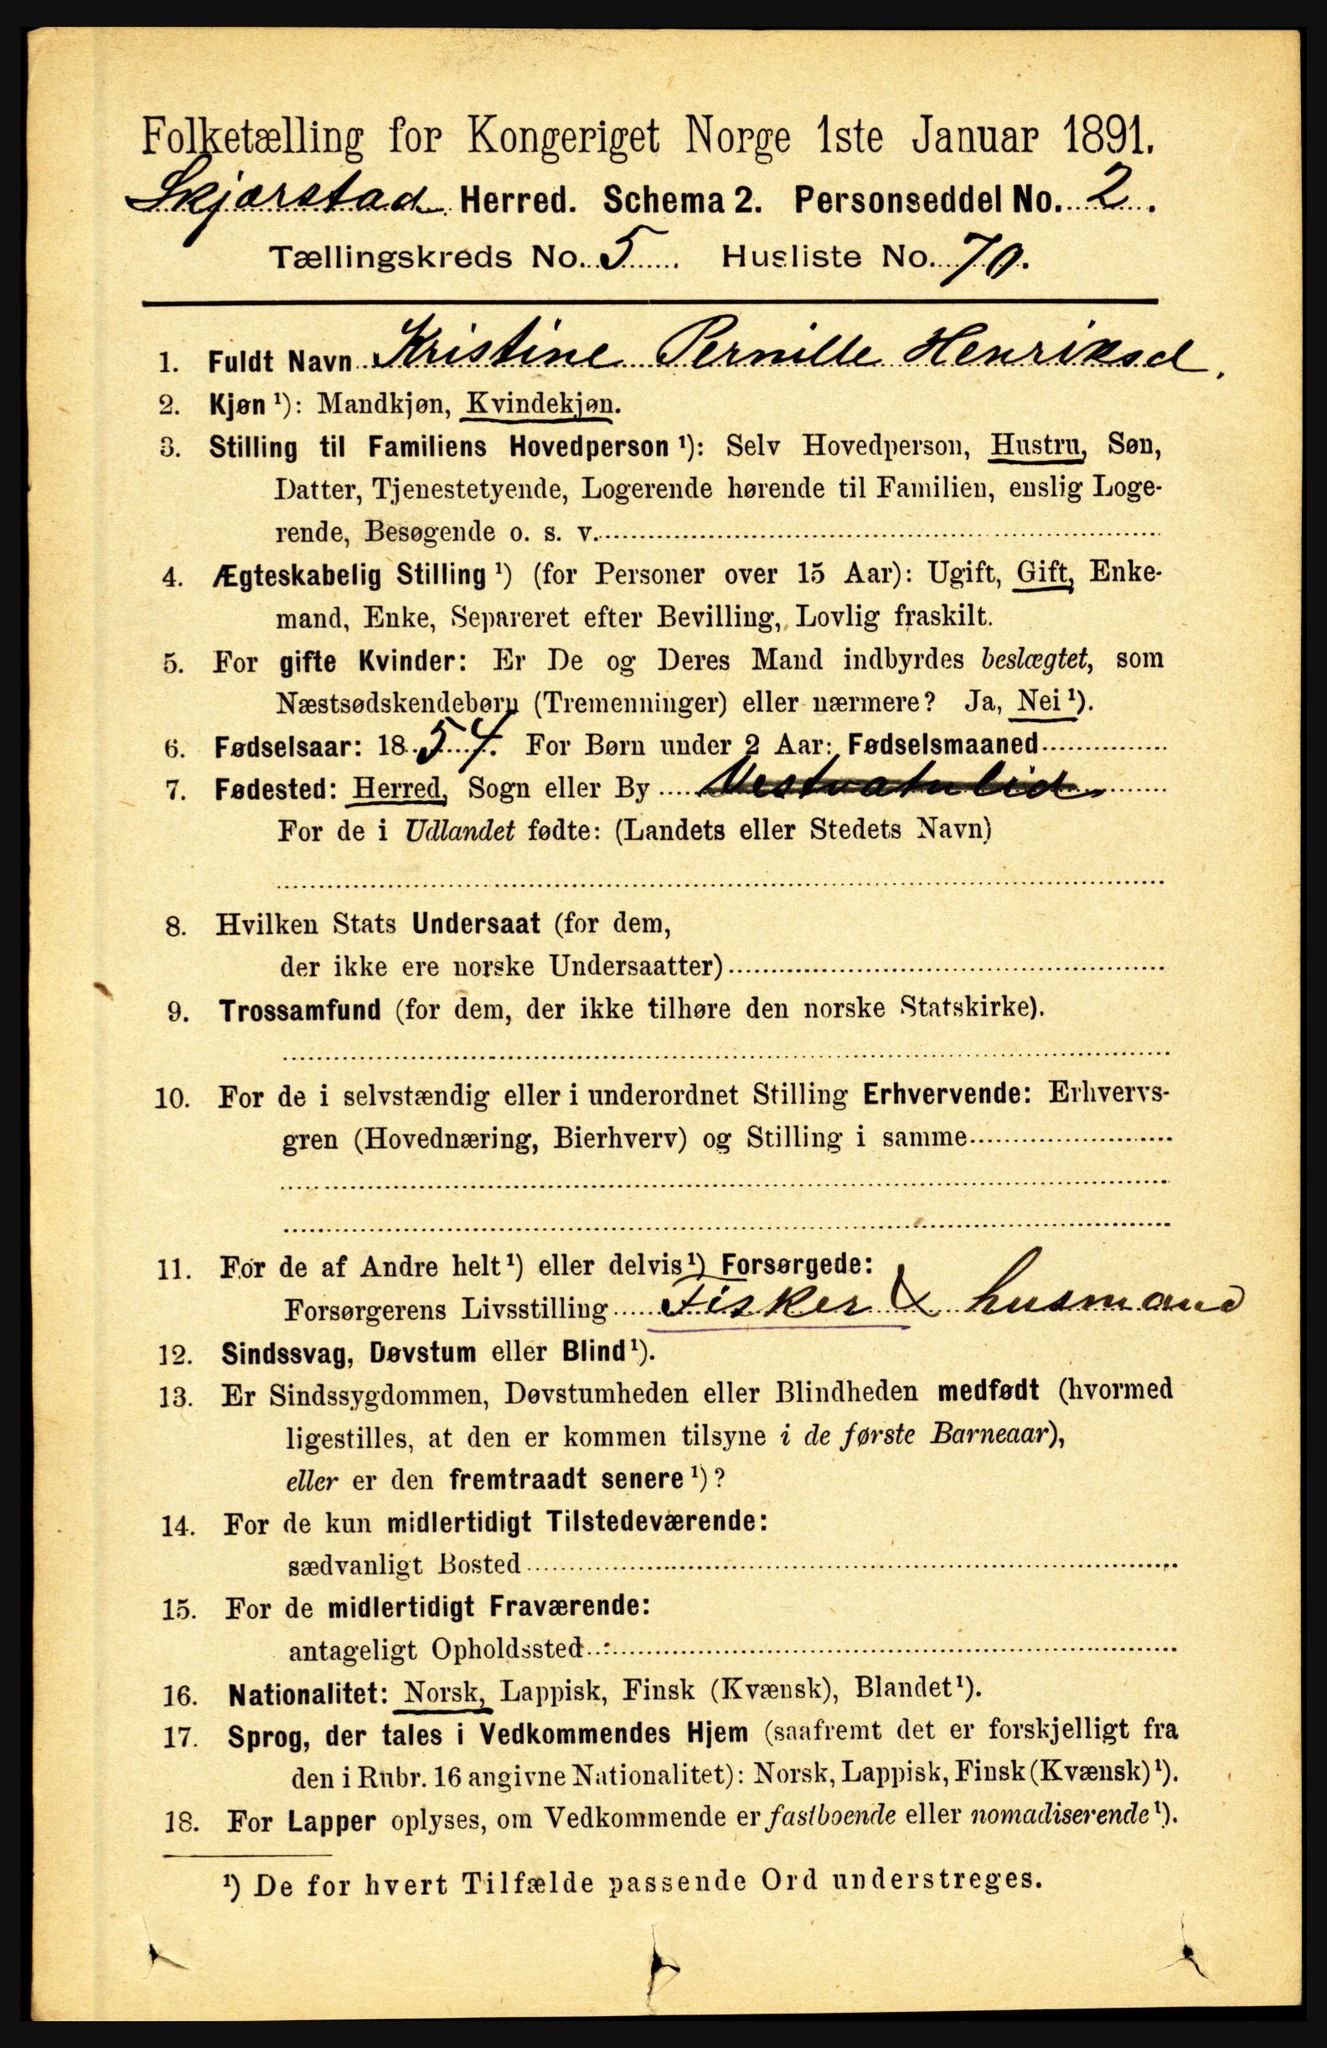 Folketælling for Kongeriget Norge 1ste Januar 1891.
Skjærstad Herred. Schema 2. Personseddel No. 2.
Tællingskreds No. 5 Husliste No. 70.
1. Fuldt Navn Kristine Pernille Henriksd.
2. Kjøn ¹): Mandkjøn, Kvindekjøn.
3. Stilling til Familiens Hovedperson ¹): Selv Hovedperson, Hustru, Søn,
Datter, Tjenestetyende, Logerende hørende til Familien, enslig Loge-
rende, Besøgende o. s. v.
4. Ægteskabelig Stilling ¹) (for Personer over 15 Aar): Ugift, Gift, Enke-
mand, Enke, Separeret efter Bevilling, Lovlig fraskilt.
5. For gifte Kvinder: Er De og Deres Mand indbyrdes beslægtet, som
Næstsødskendebørn (Tremenninger) eller nærmere? Ja, Nei ¹).
6. Fødselsaar: 1854. For Børn under 2 Aar: Fødselsmaaned
7. Fødested: Herred, Sogn eller By Vestvatnlid
For de i Udlandet fødte: (Landets eller Stedets Navn)
8. Hvilken Stats Undersaat (for dem,
der ikke ere norske Undersaatter)
9. Trossamfund (for dem, der ikke tilhøre den norske Statskirke).
10. For de i selvstændig eller i underordnet Stilling Erhvervende: Erhvervs-
gren (Hovednæring, Bierhverv) og Stilling i samme
11. For de af Andre helt ¹) eller delvis ¹) Forsørgede:
Forsørgerens Livsstilling Fisker & husmand
12. Sindssvag, Døvstum eller Blind ¹).
13. Er Sindssygdommen, Døvstumheden eller Blindheden medfødt (hvormed
ligestilles, at den er kommen tilsyne i de første Barneaar),
eller er den fremtraadt senere ¹)?
14. For de kun midlertidigt Tilstedeværende:
sædvanligt Bosted
15. For de midlertidigt Fraværende:
antageligt Opholdssted
16. Nationalitet: Norsk, Lappisk, Finsk (Kvænsk), Blandet ¹).
17. Sprog, der tales i Vedkommendes Hjem (saafremt det er forskjelligt fra
den i Rubr. 16 angivne Nationalitet): Norsk, Lappisk, Finsk (Kvænsk) ¹).
18. For Lapper oplyses, om Vedkommende er fastboende eller nomadiserende ¹).
¹) De for hvert Tilfælde passende Ord understreges.